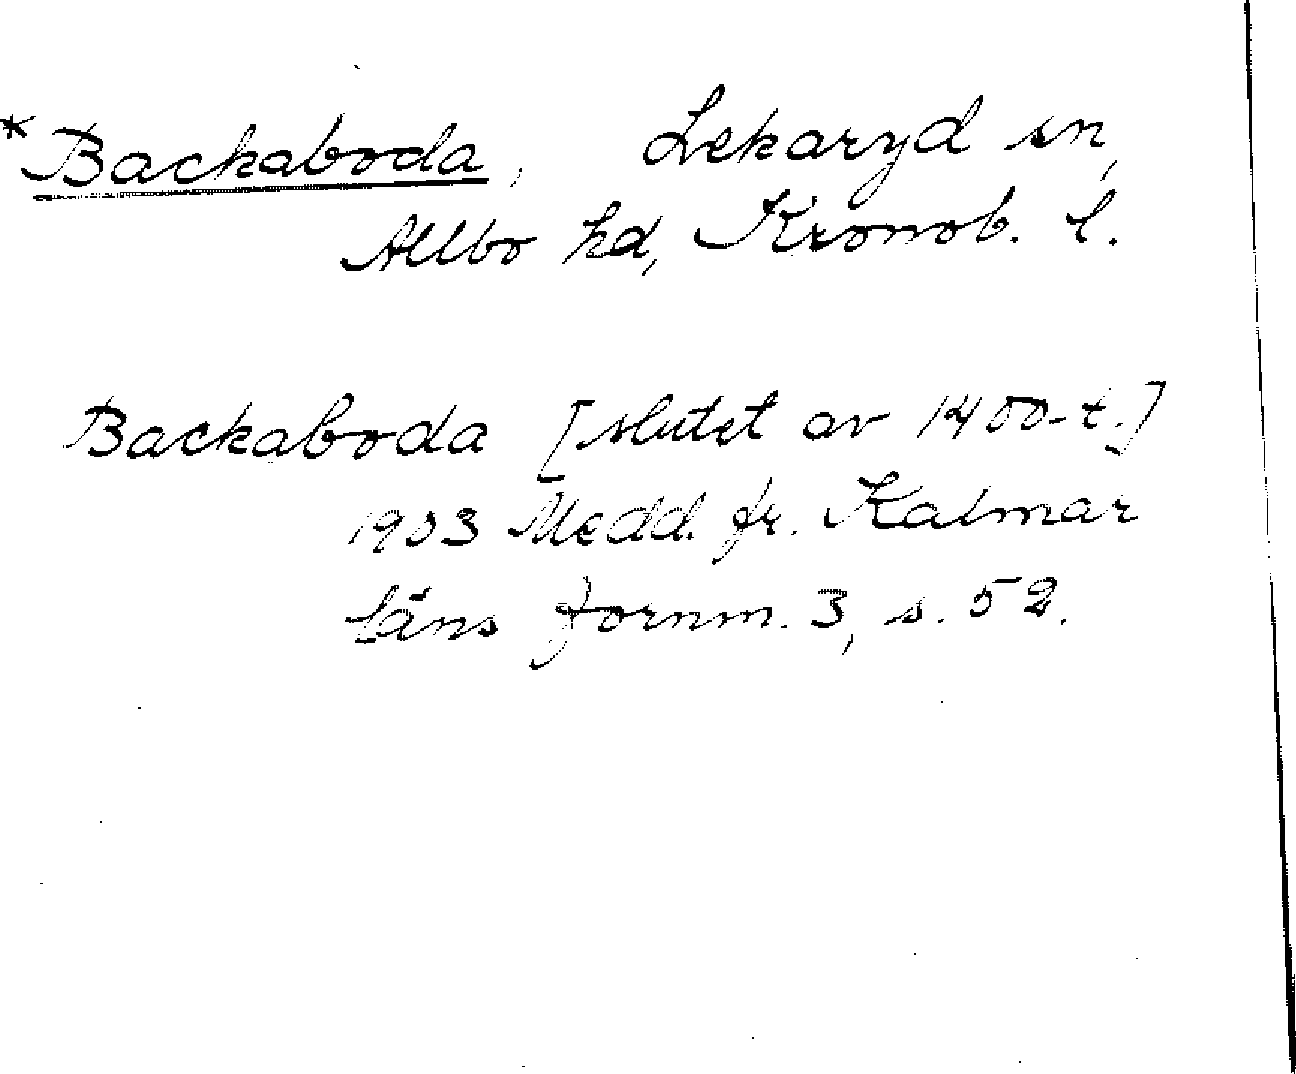 *Backaboda, Lekaryd sn,
Allbo hd, Kronob. l.
Backaboda [slutet av 1400-t.]
1903 Medd. fr. Kalmar
läns fornm. 3, s. 52.